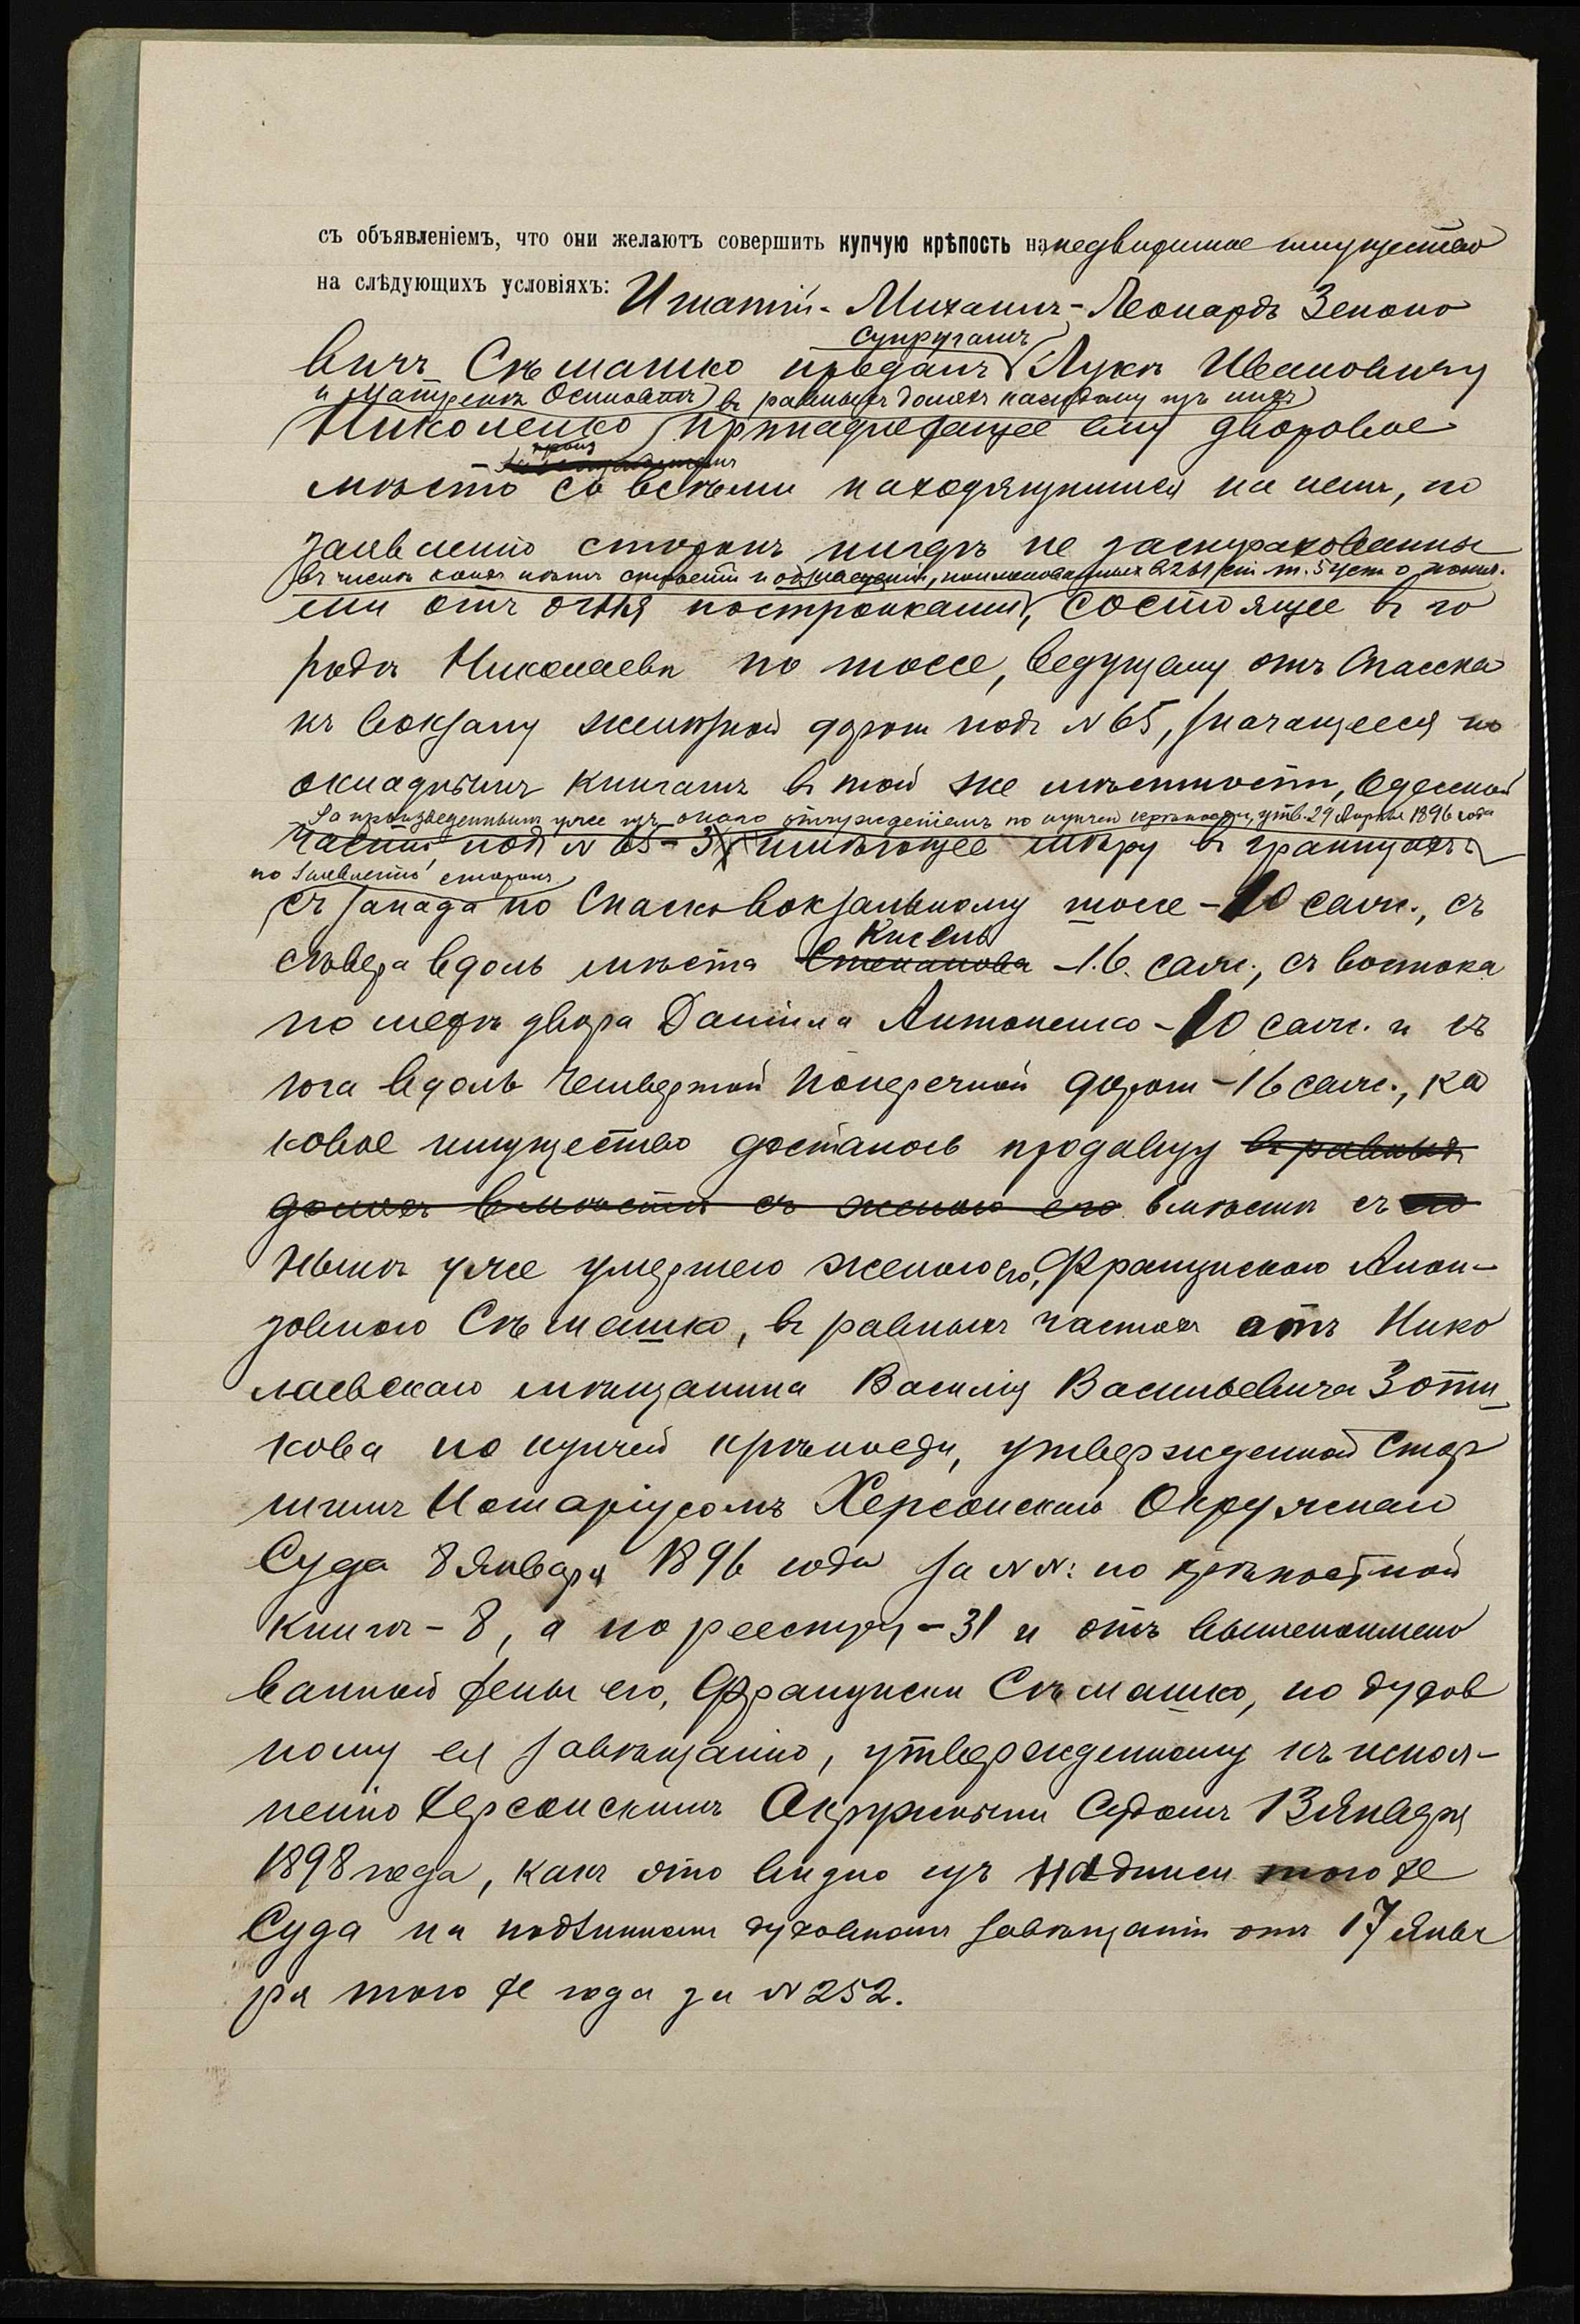 съ объявленіемъ, что они желаютъ совершить купчую крѣпость на недвижимое имущество
на слѣдующихъ условіяхъ: Игнатій-Михаилъ-Леонардъ Зеноно
супругамъ
вичъ Сѣмашко продалъ Лукѣ Ивановичу
и Матренѣ Осиповнѣ въ равныхъ доляхъ каждому изъ нихъ
Николенко принадлежащее ему дворовое
мѣсто со всѣми находящимися на немъ, по
заявленію сторонъ нигдѣ не застрахованны
въ числѣ коихъ нѣтъ строеній и помѣщеній, поименованныхъ въ 261 ст. т. 5 уст. о пошл.
ми отъ огня постройками, состоящее въ го
родѣ Николаевѣ по шоссе, ведущему отъ Спасска
къ вокзалу желѣзной дороги подъ № 65, значащееся по
окладнымъ книгамъ въ той же мѣстности, Одесской
За произведеннымъ уже изъ онаго отчужденіемъ по купчей крѣпости, утв. 29 Апрѣля 1896 года
части подъ № 65-3 имѣющее мѣру въ границахъ:
по заявленію сторонъ
съ запада по Спасковокзальному шоссе - 10 саж., съ
Кисель
сѣвера вдоль мѣста Степанова - 16 саж., съ востока
по межѣ двора Даніила Антоненко - 10 саж. и съ
юга вдоль Четвертой Поперечной дороги - 16 саж., ка
ковое имущество досталось продавцу въ равныхъ
доляхъ вмѣстѣ съ женою его вмѣстѣ съ
нынѣ уже умершею женою его, Францискою Алои-
зовною Сѣмашко, въ равныхъ частяхъ отъ Нико
лаевскаго мѣщанина Василія Васильевича Зоти
кова по купчей крѣпости, утвержденной Стар
шимъ Нотаріусомъ Херсонскаго Окружнаго
Суда 8 Января 1896 года за №№: по крѣпостной
книгѣ - 8, а по реестру - 31 и отъ вышепоимено
ванной жены его, Франциски Сѣмашко, по духов
ному ея завѣщанію, утвержденному къ испол-
ненію Херсонскимъ Окружнымъ Судомъ 13 Января
1898 года, какъ это видно изъ надписи того же
Суда на подлинномъ духовномъ завѣщаніи отъ 17 Янва
ря того же года за № 252.